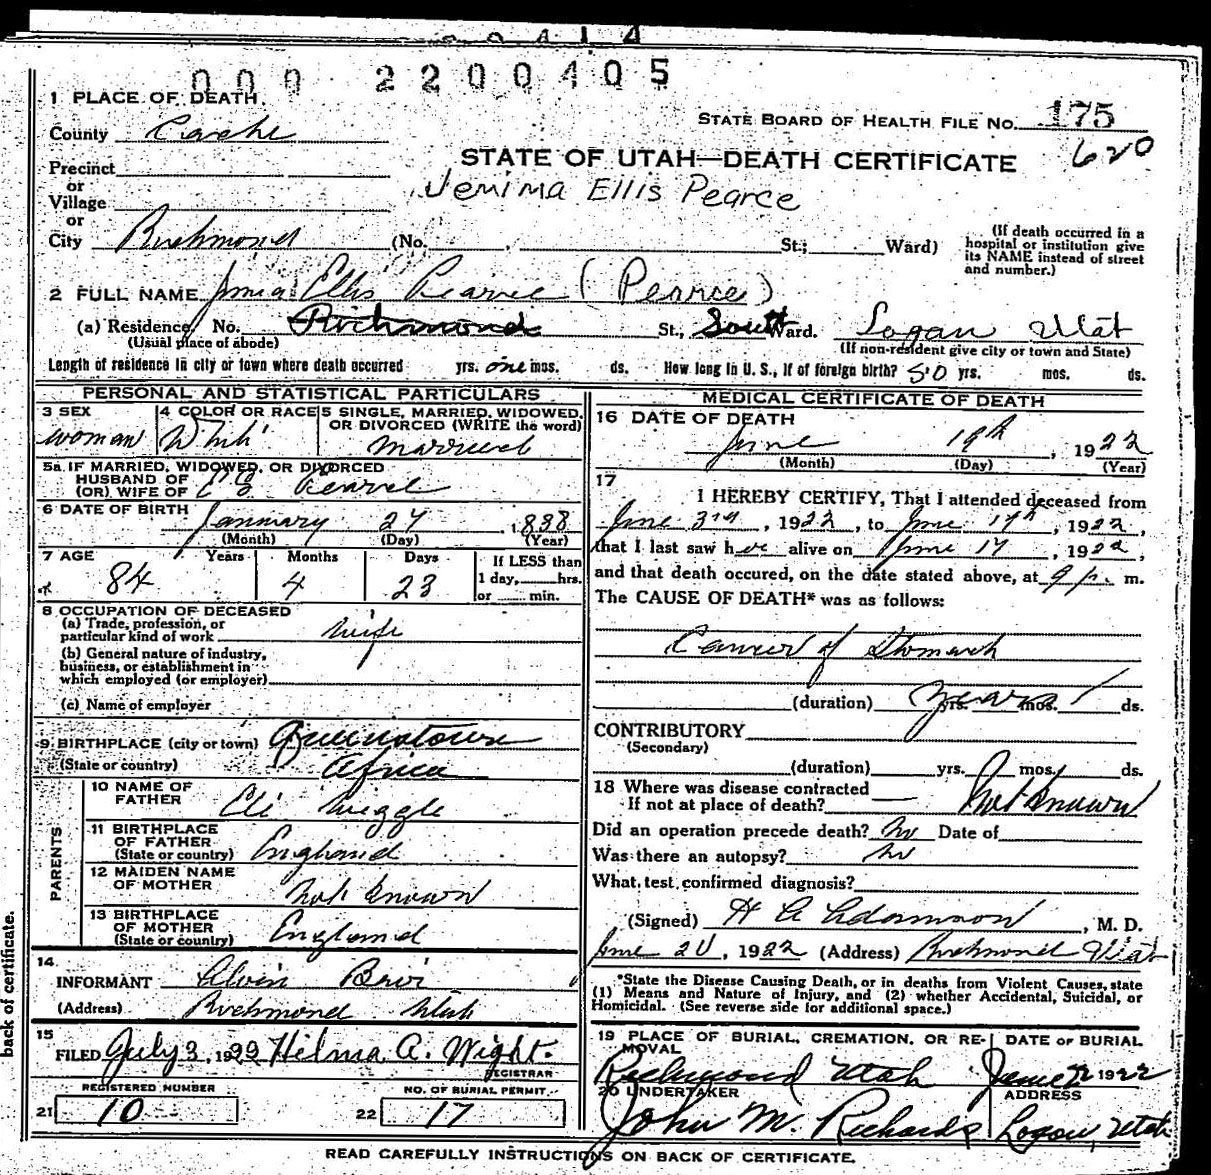 000 2200405
1 PLACE OF DEATH.
County Cache
STATE BOARD OF HEALTH FILE No. 175
620
Precinct
or
Village
or
STATE OF UTAH—DEATH CERTIFICATE
Jemima Ellis Pearce
City Richmond (No. , St.; Ward)
(If death occurred in a
hospital or institution give
its NAME instead of street
and number.)
2 FULL NAME Ellis Pearce (Pearce)
(a) Residence, No. Richmond St., South Ward. Logan Utah
(Usual place of abode)
(If non-resident give city or town and State)
Length of residence in city or town where death occurred yrs. one mos. ds. How long in U. S., if of foreign birth? 50 yrs. mos. ds.
PERSONAL AND STATISTICAL PARTICULARS
3 SEX
woman
4 COLOR OR RACE
White
5 SINGLE, MARRIED, WIDOWED,
OR DIVORCED (WRITE the word)
married
5a IF MARRIED, WIDOWED, OR DIVORCED
HUSBAND OF
(OR) WIFE OF Pearce
6 DATE OF BIRTH January 27, 1838
(Month) (Day) (Year)
7 AGE Years Months Days If LESS than
84 4 23 1 day, hrs.
or min.
8 OCCUPATION OF DECEASED
(a) Trade, profession, or
particular kind of work wife
(b) General nature of industry,
business, or establishment in
which employed (or employer)
(c) Name of employer
9 BIRTHPLACE (city or town) Queenstown
(State or country) Africa
PARENTS
10 NAME OF
FATHER Eli Wiggle
11 BIRTHPLACE
OF FATHER
(State or country) England
12 MAIDEN NAME
OF MOTHER Not known
13 BIRTHPLACE
OF MOTHER
(State or country) England
14
INFORMANT Alvin
(Address) Richmond Utah
15
FILED July 3, 1922 Hilma A. Wight.
REGISTRAR
REGISTERED NUMBER NO. OF BURIAL PERMIT
21 10 22 17
MEDICAL CERTIFICATE OF DEATH
16 DATE OF DEATH
June 19th, 1922
(Month) (Day) (Year)
17
I HEREBY CERTIFY, That I attended deceased from
June 3rd, 1922, to June 19th, 1922,
that I last saw her alive on June 17, 1922,
and that death occured, on the date stated above, at 9 p. m.
The CAUSE OF DEATH* was as follows:
Cancer of Stomach
(duration) years mos. ds.
CONTRIBUTORY
(Secondary)
(duration) yrs. mos. ds.
18 Where was disease contracted
If not at place of death? — Not known
Did an operation precede death? No Date of
Was there an autopsy? No
What test confirmed diagnosis?
(Signed) H A Adamson, M. D.
June 20, 1922 (Address) Richmond Utah
*State the Disease Causing Death, or in deaths from Violent Causes, state
(1) Means and Nature of Injury, and (2) whether Accidental, Suicidal, or
Homicidal. (See reverse side for additional space.)
19 PLACE OF BURIAL, CREMATION, OR RE-
MOVAL
Richmond Utah
DATE OF BURIAL
June 22 1922
20 UNDERTAKER
John M. Richards
ADDRESS
Logan, Utah
READ CAREFULLY INSTRUCTIONS ON BACK OF CERTIFICATE.
back of certificate.